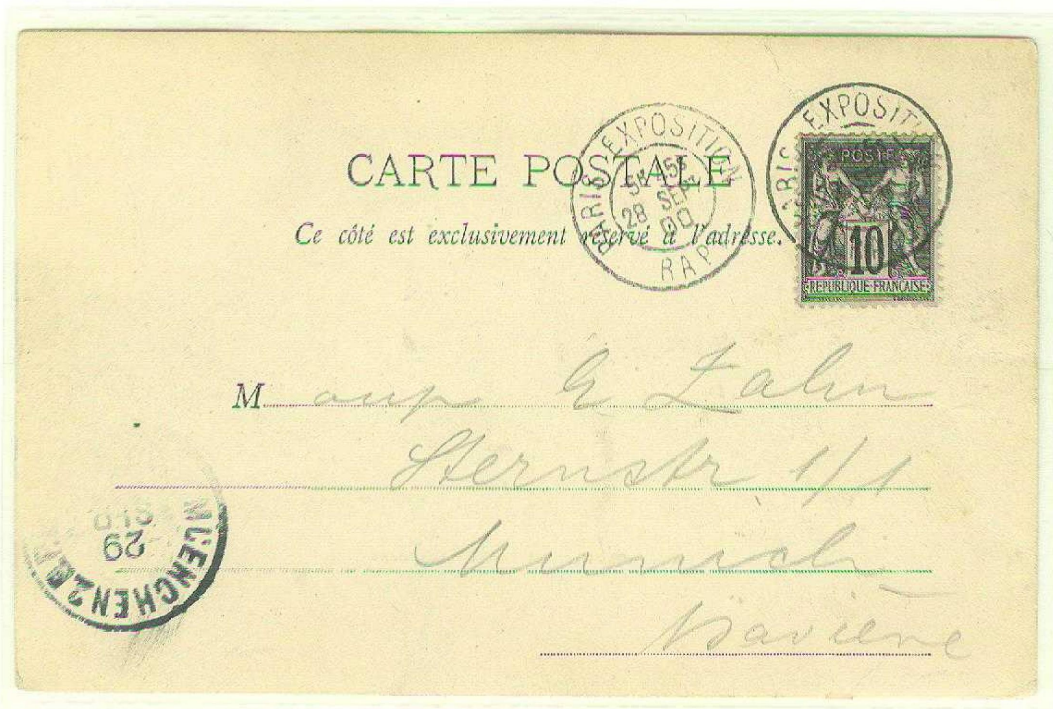 CARTE POSTALE
Ce côté est exclusivement réservé à l'adresse.
PARIS - EXPOSITION
5E 15
28 SEPT
00
RAPP
PARIS - EXPOSITION
POSTES
10
REPUBLIQUE FRANÇAISE
M G. Zahn
Sternstr. 1/1
Munich
Bavière
MUENCHEN 2
29
SEP